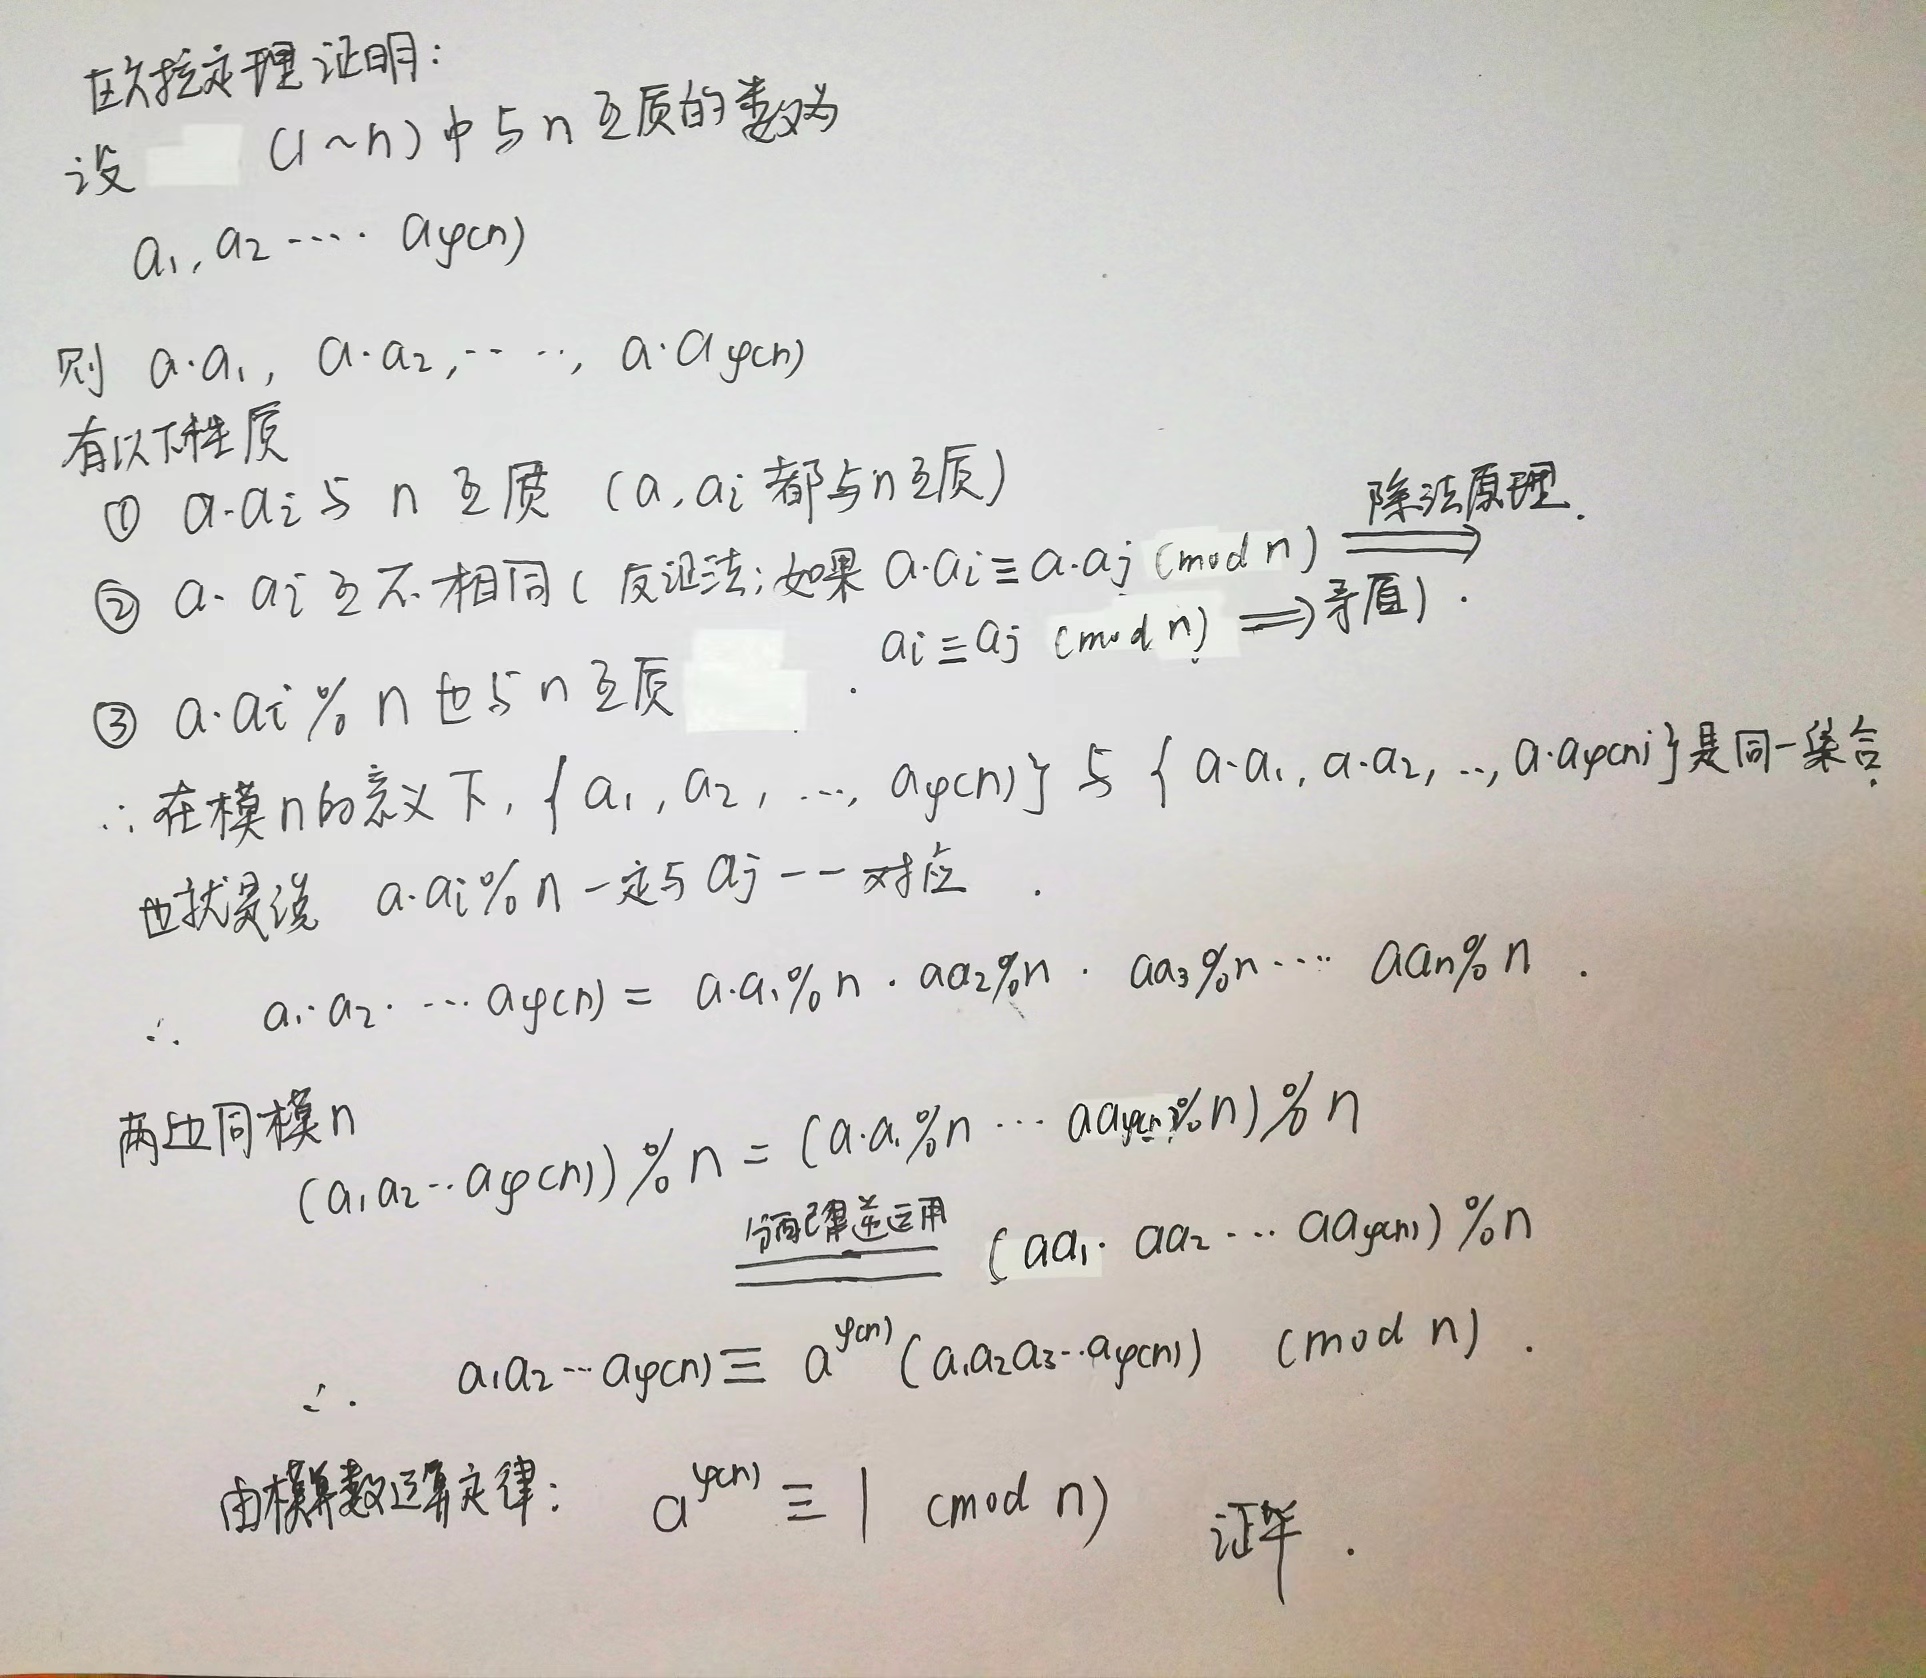 在欧拉定理证明:
设 (1~n)中与n互质的数为
a₁, a₂ ···· aφ(n)
则 a·a₁, a·a₂, ·· ··, a·aφ(n)
有以下性质
① a·aᵢ与 n 互质 (a, aᵢ 都与n互质)
② a·aᵢ互不相同( 反证法:如果 a·aᵢ≡a·aⱼ (mod n) ⟹ 除法原理.
aᵢ≡aⱼ (mod n) ⟹矛盾).
③ a·aᵢ % n 也与n互质
∴在模n的意义下, {a₁, a₂, ..., aφ(n)} 与 {a·a₁, a·a₂, .., a·aφ(n)}是同一集合.
也就是说 a·aᵢ%n一定与aⱼ一一对应.
∴ a₁·a₂· ···aφ(n) = a·a₁%n · aa₂%n · aa₃%n ···· aaₙ%n .
两边同模n
(a₁a₂··aφ(n))%n = (a·a₁%n ··· aaφ(n)%n)%n
分配律逆运用
═══ (aa₁· aa₂ ··· aaφ(n))%n
∴ a₁a₂···aφ(n) ≡ a^φ(n) (a₁a₂a₃··aφ(n)) (mod n) .
由模算数运算定律: a^φ(n) ≡ 1 (mod n) 证毕.